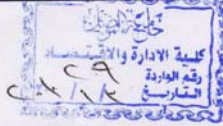 جامعة الموصل
كلية الادارة والاقتصاد
رقم الواردة ٢٩
التاريخ